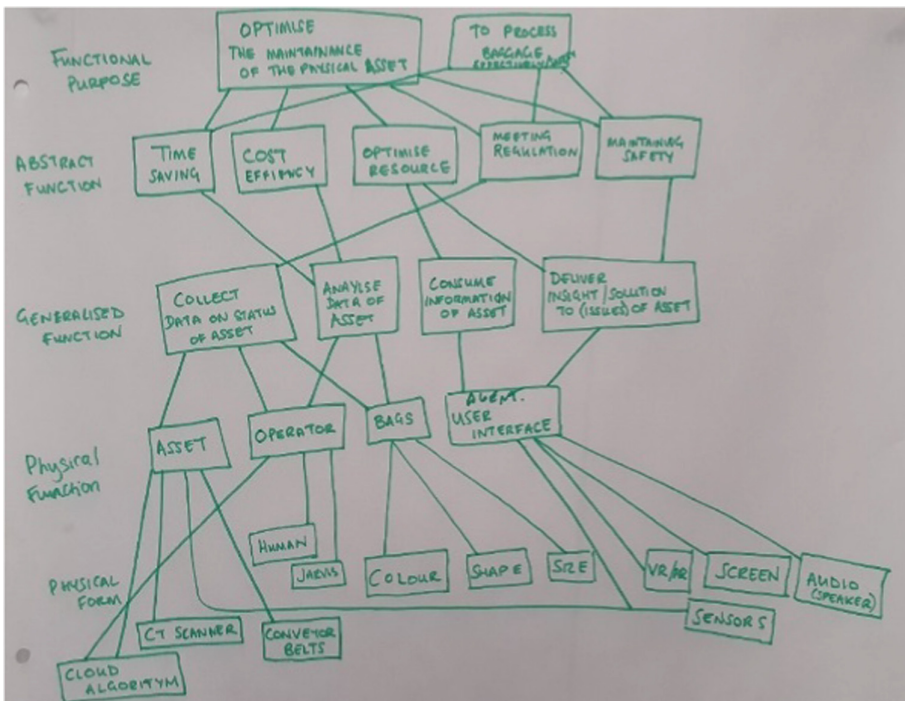 FUNCTIONAL
PURPOSE
OPTIMISE
THE MAINTAINANCE
OF THE PHYSICAL ASSET
TO PROCESS
BAGGAGE
EFFECTIVELY
ABSTRACT
FUNCTION
TIME
SAVING
COST
EFFIENCY
OPTIMISE
RESOURCE
MEETING
REGULATION
MAINTAINING
SAFETY
GENERALISED
FUNCTION
COLLECT
DATA ON STATUS
OF ASSET
ANAYLSE
DATA OF
ASSET
CONSUME
INFORMATION
OF ASSET
DELIVER
INSIGHT/SOLUTION
TO (ISSUES) OF ASSET
Physical
Function
ASSET
OPERATOR
BAGS
AGENT.
USER
INTERFACE
PHYSICAL
FORM
HUMAN
JARVIS
COLOUR
SHAPE
SIZE
VR/AR
SCREEN
AUDIO
(SPEAKER)
CT SCANNER
CONVEYOR
BELTS
SENSORS
CLOUD
ALGORITYM